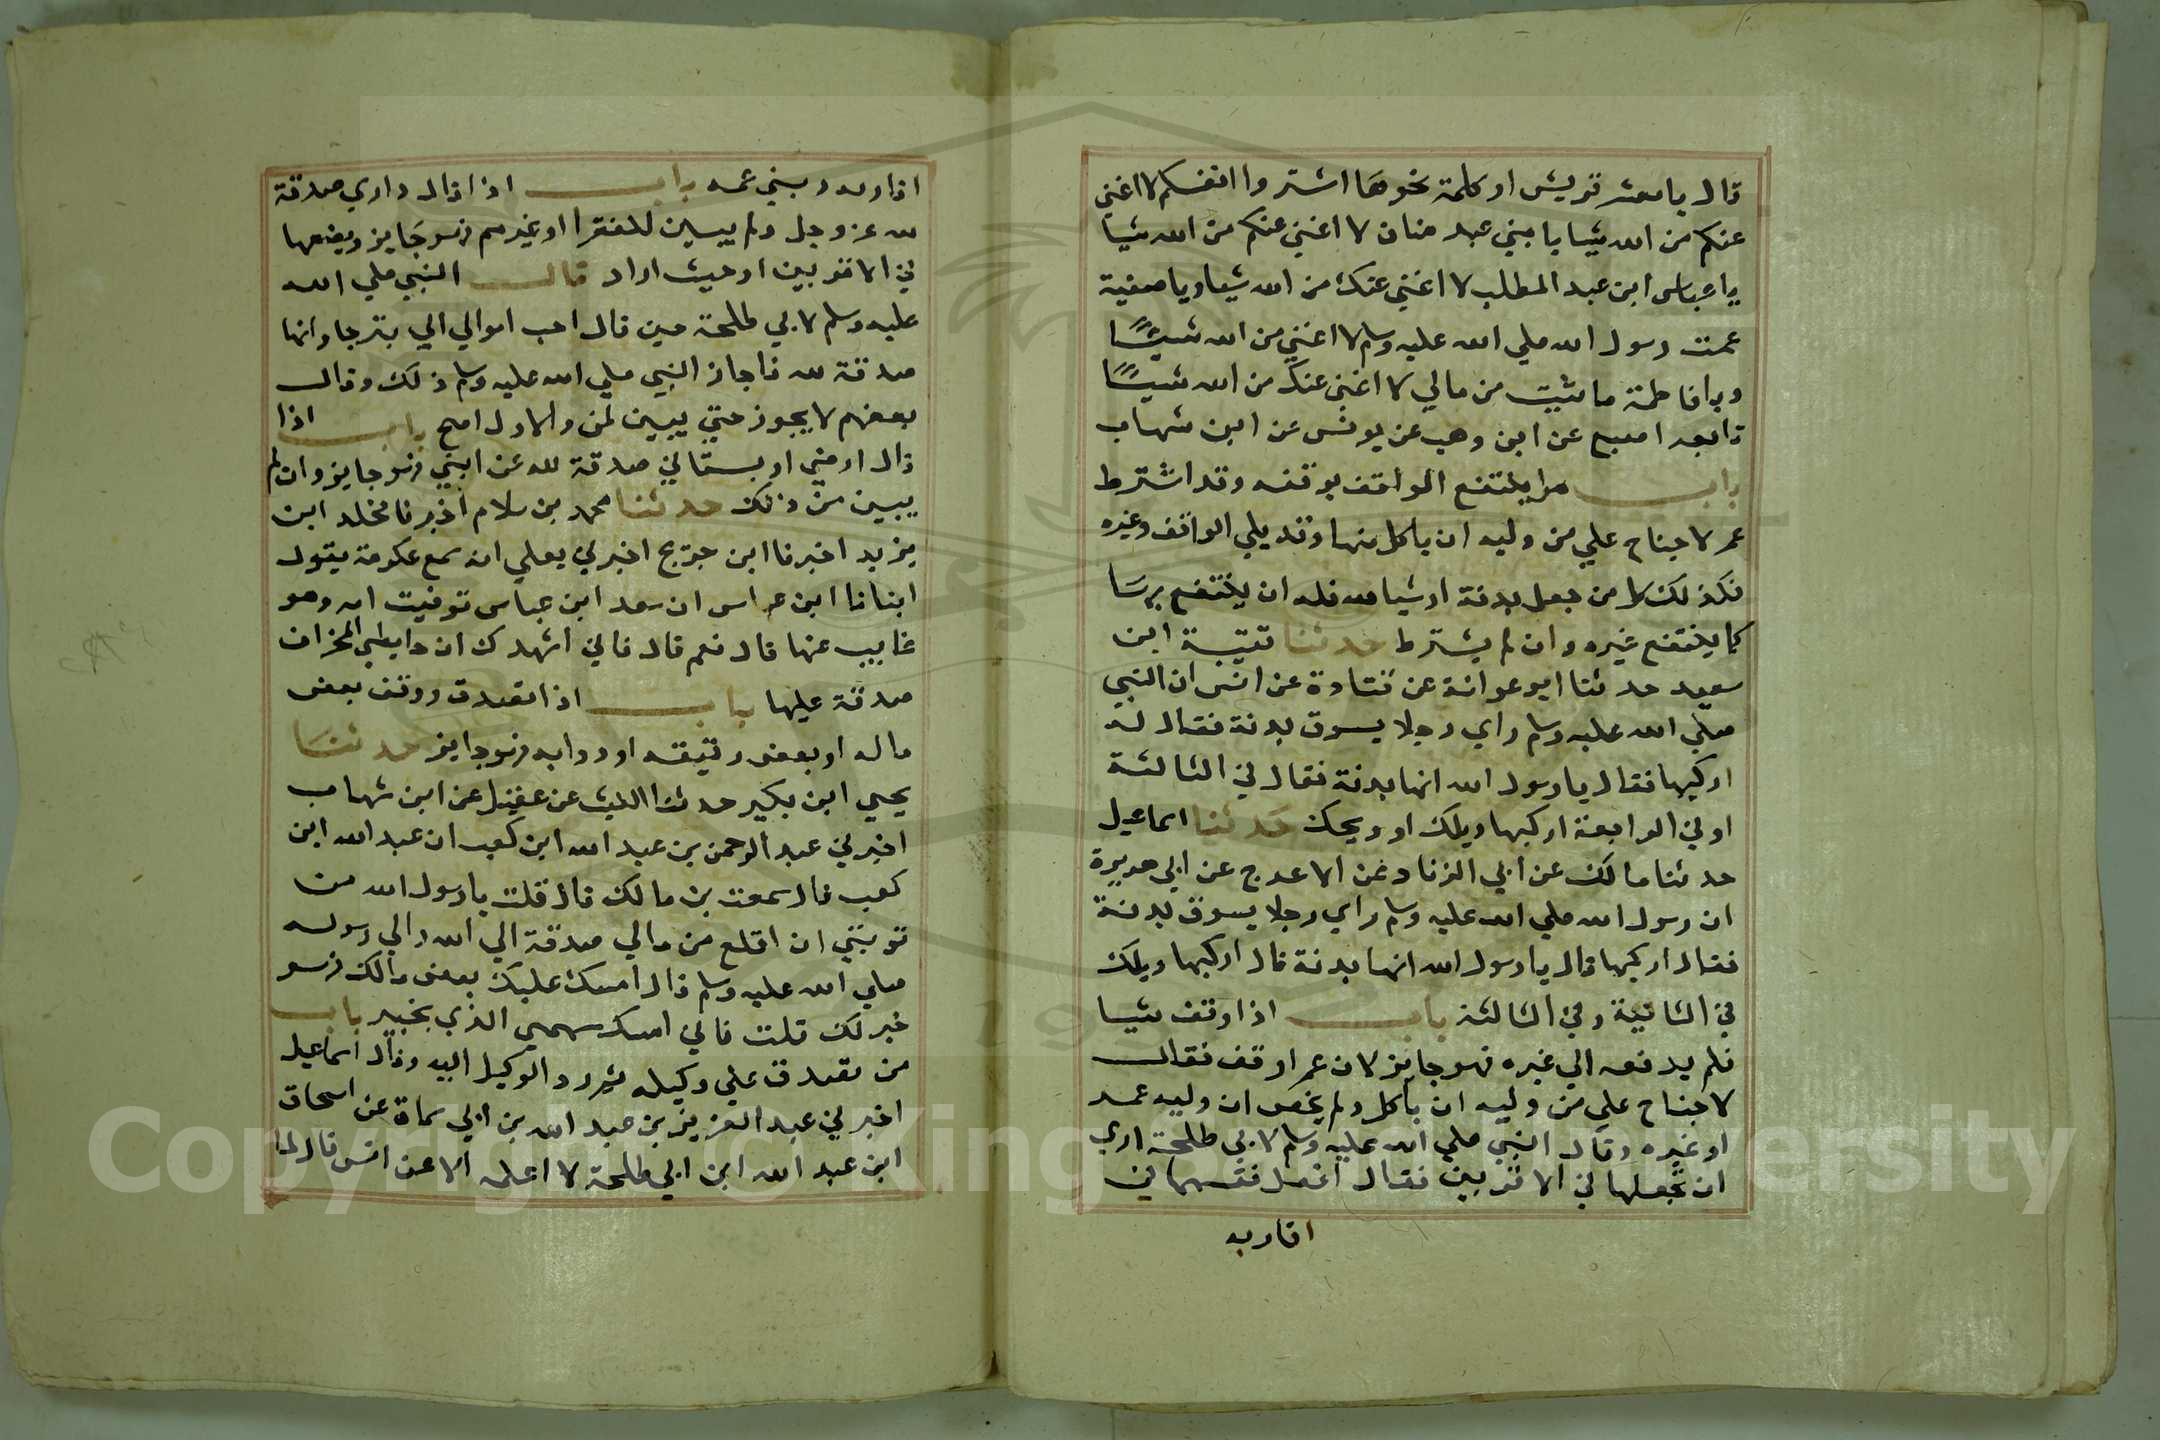 قال يا معشر قريش او كلمة نحوها اشتروا انفسكم لا اغني
عنكم من الله شيا يا بني عبد مناف لا اغني عنكم من الله شيا
يا عباس ابن عبد المطلب لا اغني عنك من الله شيا ويا صفية
عمت رسول الله صلي الله عليه وسلم لا اغني من الله شيًا
ويا فاطمة ما شيت من مالي لا اغني عنك من الله شيًا
تابعه اصبع عن ابن وهب عن يونس عن ابن شهاب
باب هل ينتفع الواقف بوقفه وقد اشترط
عمر لا جناح علي من وليه ان ياكل منها وقد يلي الواقف وغيره
فكذلك كل من جعل بدنة او شيا لله فله ان ينتفع بها
كما ينتفع غيره وان لم يشترط حدثنا قتيبة ابن
سعيد حدثنا ابو عوانة عن قتادة عن انس ان النبي
صلي الله عليه وسلم راي رجلا يسوق بدنة فقال له
اركبها فقال يا رسول الله انها بدنة فقال في الثالثة
او في الرابعة اركبها ويلك او ويحك حدثنا اسماعيل
حدثنا مالك عن ابي الزناد عن الاعرج عن ابي هريرة
ان رسول الله صلي الله عليه وسلم راي رجلا يسوق بدنة
فقال اركبها قال يا رسول الله انها بدنة قال اركبها ويلك
في الثانية وفي الثالثة باب اذا وقف شيا
فلم يدفعه الي غيره فهو جايز لان عمر اوقف فقال
لا جناح علي من وليه ان ياكل ولم يخص ان وليه عمر
او غيره وقال النبي صلي الله عليه وسلم لابي طلحة اري
ان تجعلها في الاقربين فقال افعل فقسمها في
اقاربه
اقاربه وبني عمه باب اذا قال داري صدقة
لله عز وجل ولم يبين للفقرا او غيرهم فهو جايز ويضعها
في الاقربين او حيث اراد قال النبي صلي الله
عليه وسلم لابي طلحة حين قال احب اموالي الي بيرحا وانها
صدقة لله فاجاز النبي صلي الله عليه وسلم ذلك وقال
بعضهم لا يجوز حتي يبين لمن والاول اصح باب اذا
قال ارضي او بستاني صدقة لله عن ابني فهو جايز وان لم
يبين من ذلك حدثنا محمد بن سلام اخبرنا مخلد ابن
يزيد اخبرنا ابن جريج اخبرني يعلي انه سمع عكرمة يقول
انبانا ابن عباس ان سعد ابن عباس توفيت امه وهو
غايب عنها قال نعم قال فاني اشهدك ان حايطي المخراف
صدقة عليها باب اذا تصدق ووقف بعض
ماله او بعض رقيقه او دوابه فهو جايز حدثنا
يحيي ابن بكير حدثنا الليث عن عقيل عن ابن شهاب
اخبرني عبد الرحمن بن عبد الله ابن كعب ان عبد الله ابن
كعب قال سمعت بن مالك قال قلت يا رسول الله من
توبتي ان اقلع من مالي صدقة الي الله والي رسوله
صلي الله عليه وسلم قال امسك عليك بعض مالك فهو
خير لك قلت فاني امسك سهمي الذي بخيبر باب
من تصدق علي وكيله ثم رد الوكيل اليه وقال اسماعيل
اخبرني عبد العزيز بن عبد الله بن ابي سلمة عن اسحاق
ابن عبد الله ابن ابي طلحة لا اعلمه الا عن انس قال لما
Copyright © King Saud University